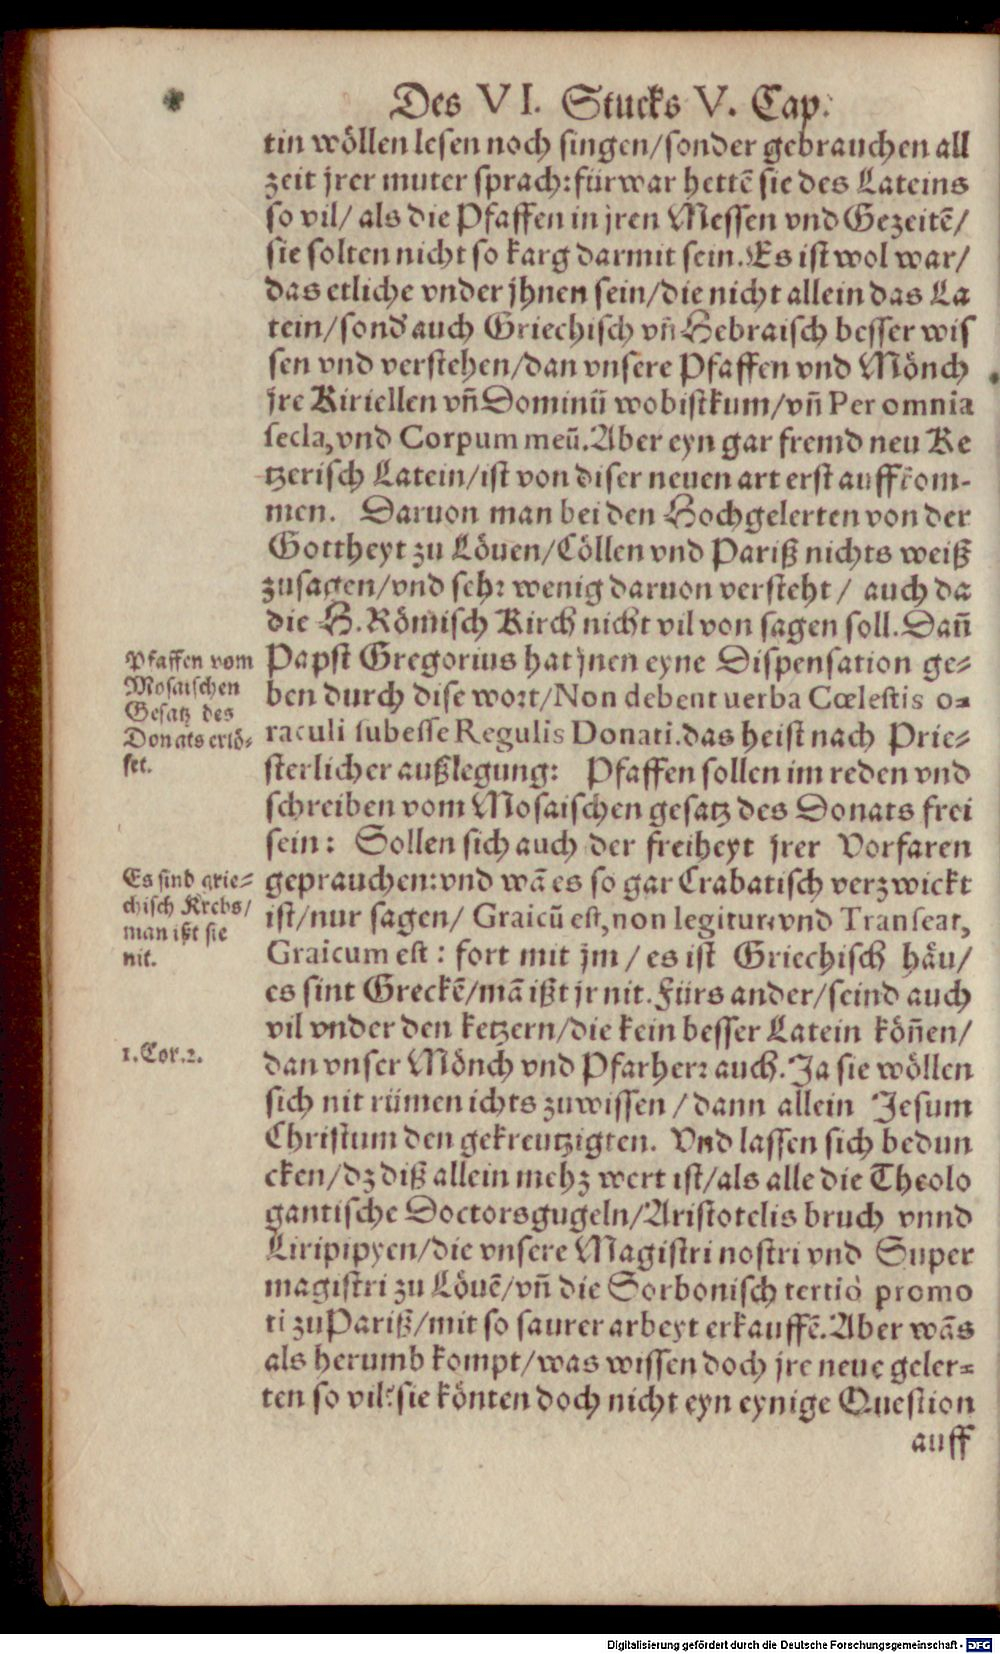 Des VI. Stucks V. Cap.
tin wöllen lesen noch singen/sonder gebrauchen all
zeit jrer muter sprach: fürwar hettẽ sie des Lateins
so vil/ als die Pfaffen in jren Messen vnd Gezeitẽ/
sie solten nicht so karg darmit sein. Es ist wol war/
das etliche vnder jhnen sein/die nicht allein das La
tein/sond auch Griechisch vñ Hebraisch besser wis
sen vnd verstehen/dan vnsere Pfaffen vnd Mönch
jre Kiriellen vñ Dominũ wobistkum/vñ Per omnia
secla, vnd Corpum meũ. Aber eyn gar fremd neu Ke
tzerisch Latein/ist von diser neuen art erst auffkom-
men. Daruon man bei den Hochgelerten von der
Gottheyt zu Löuen/Cöllen vnd Pariß nichts weiß
zusagen/vnd sehr wenig daruon versteht/ auch da
die H. Römisch Kirch nicht vil von sagen soll. Dañ
Papst Gregorius hat jnen eyne Dispensation ge-
ben durch dise wort/Non debent uerba Cœlestis o-
raculi subesse Regulis Donati. das heist nach Prie-
sterlicher außlegung: Pfaffen sollen im reden vnd
schreiben vom Mosaischen gesatz des Donats frei
sein: Sollen sich auch der freiheyt jrer Vorfaren
geprauchen: vnd wã es so gar Crabatisch verzwickt
ist/nur sagen/ Graicũ est, non legitur: vnd Transeat,
Graicum est: fort mit jm/ es ist Griechisch häu/
es sint Greckẽ/mã ißt jr nit. Fürs ander/seind auch
vil vnder den ketzern/die kein besser Latein köñen/
dan vnser Mönch vnd Pfarherr auch. Ja sie wöllen
sich nit rümen ichts zuwissen/dann allein Jesum
Christum den gekreutzigten. Vnd lassen sich bedun
cken/dz diß allein mehz wert ist/als alle die Theolo
gantische Doctorsgugeln/Aristotelis bruch vnnd
Liripipyen/die vnsere Magistri nostri vnd Super
magistri zu Löuẽ/vñ die Sorbonisch tertiò promo
ti zu Pariß/mit so saurer arbeyt erkauffẽ. Aber wãs
als herumb kompt/was wissen doch jre neue geler-
ten so vil? sie könten doch nicht eyn eynige Question
auff
Pfaffen vom
Mosaischen
Gesatz des
Donats erlö-
set.
Es sind grie-
chisch Krebs/
man ißt sie
nit.
1. Cor. 2.
Digitalisierung gefördert durch die Deutsche Forschungsgemeinschaft - DFG